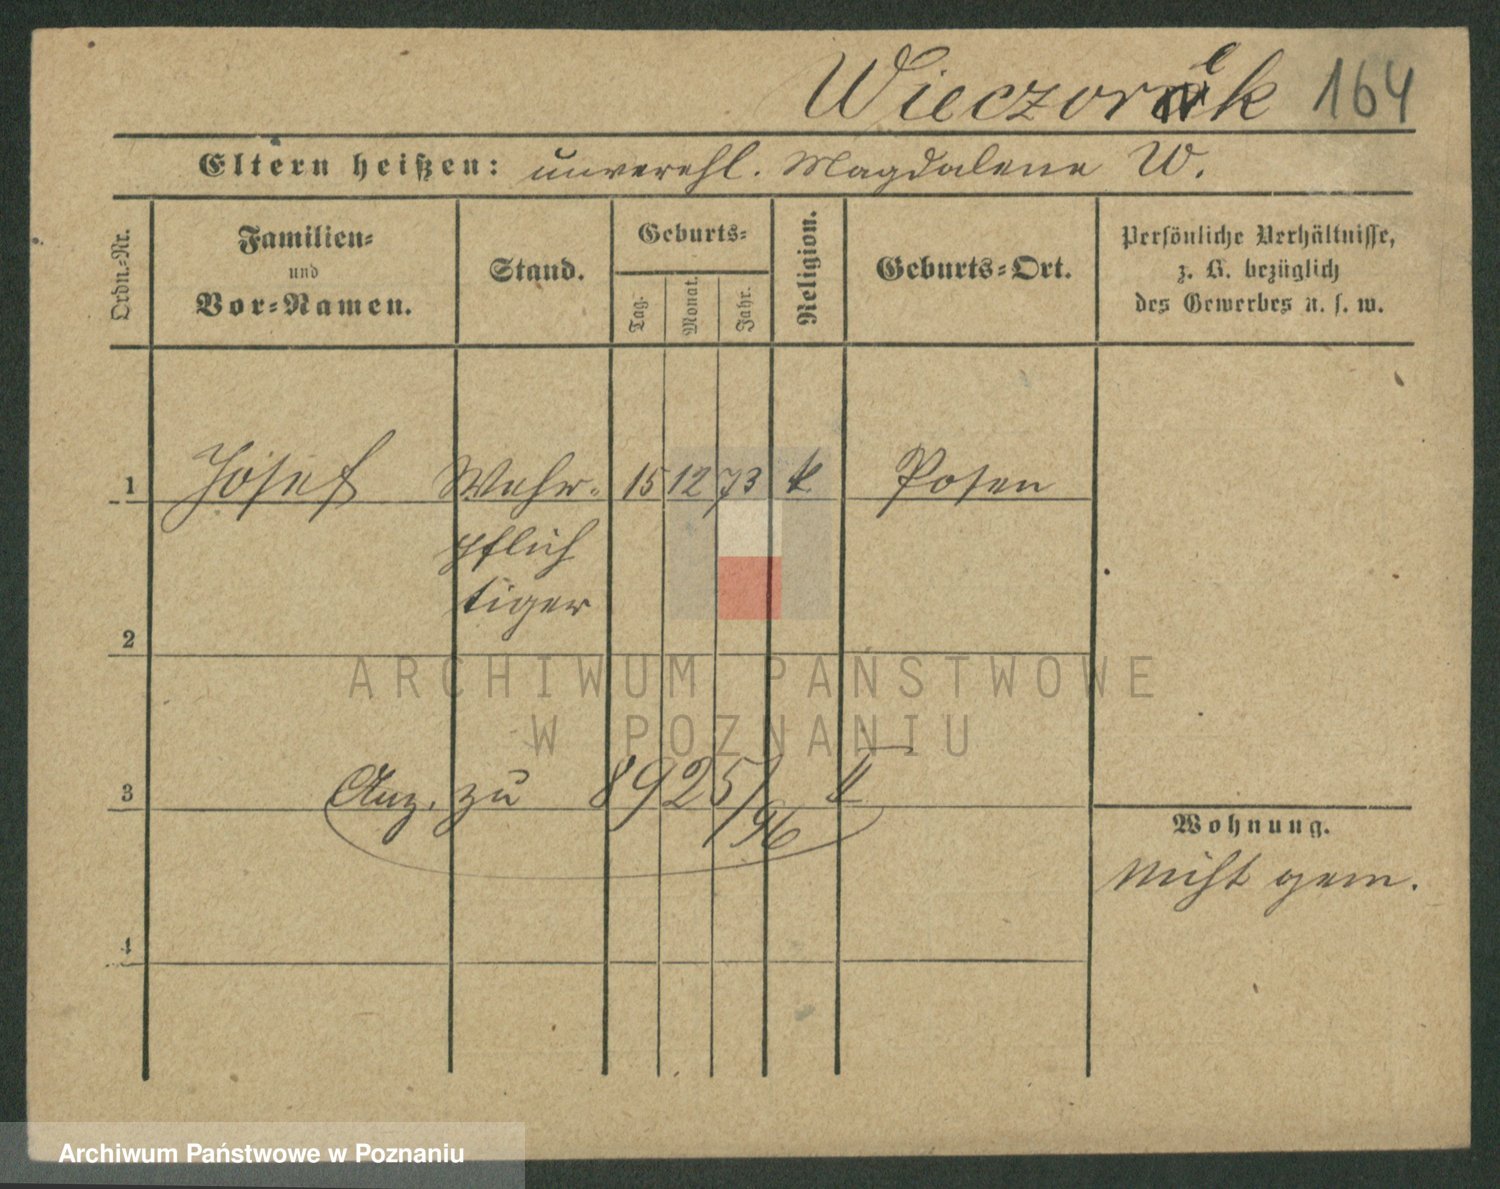 Wieczorek 164
Eltern heißen: unverehl. Magdalene W.
Ordn.-Nr.
Familien-
und
Vor-Namen.
Stand.
Geburts-
Tag.
Monat.
Jahr.
Religion.
Geburts-Ort.
Persönliche Verhältnisse,
z. B. bezüglich
des Gewerbes u. s. w.
1 Josef Wehr- 15 12 73 k Posen
pflich
tiger
2
ARCHIWUM PAŃSTWOWE
W POZNANIU
3 Anz. zu 8925/96 II
Wohnung.
nicht gem.
4
Archiwum Państwowe w Poznaniu